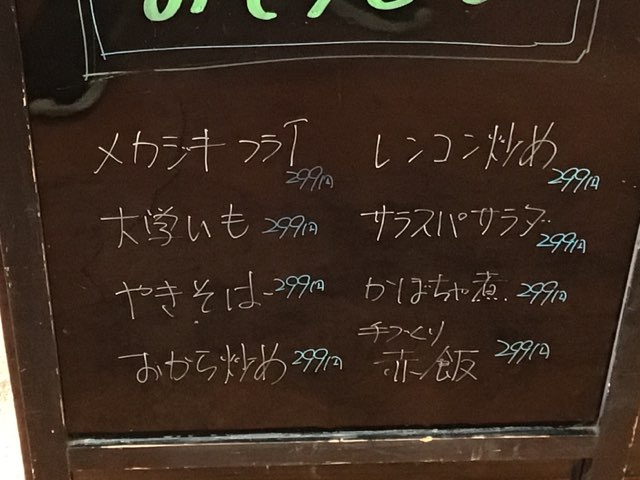 メカジキフライ 299円
大学いも 299円
やきそば 299円
おから炒め 299円
レンコン炒め 299円
サラスパサラダ 299円
かぼちゃ煮 299円
手づくり
赤飯 299円